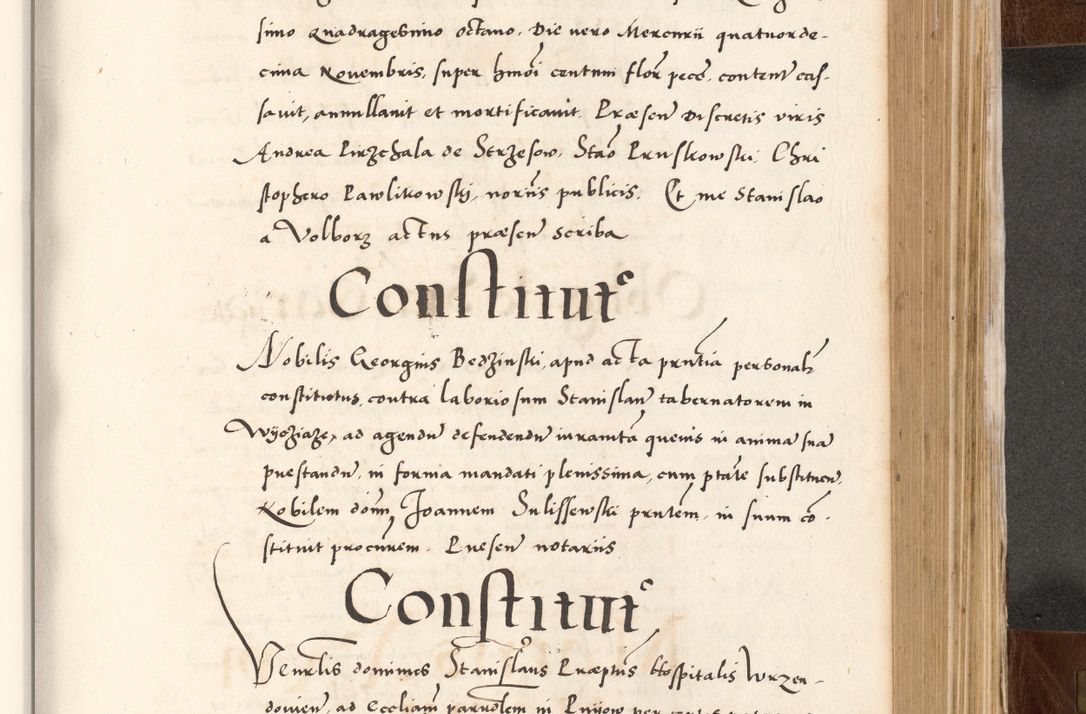 simo Quadragesimo octavo. Die vero Mercurii quatuorde-
cima Novembris, super hmōi centum flor̄ pecc̄. content̄ cas-
savit, annullavit et mortificavit. Præsen̄ Discretis viris
Andrea Pirzchala de Strzesow, Stāo Pruskowski, Chri
stophero Pawlikowskj, noriis publicis. Et me Stanislao
a Volborz actus præsen̄ scriba
Constitut̄
Nobilis Georgius Bedzinski, apud acta prn̄tia personalr̄
constitutus, contra laboriosum Stanislaū tabernatorem in
Wyciaze, ad agendū defendendū iuramtā quevis in anima sua
prestandū, in forma mandati plenissima, cum ptāte substituen̄,
Nobilem dōnū Joannem Sulissewski prn̄tem, in suum cō-
stituit procūrem. Presen̄ notariis
Constitut̄
Venrlis dominus Stanislaus Præptus Hospitalis Wrzen-
dovien̄, ad Eccliam̄ in